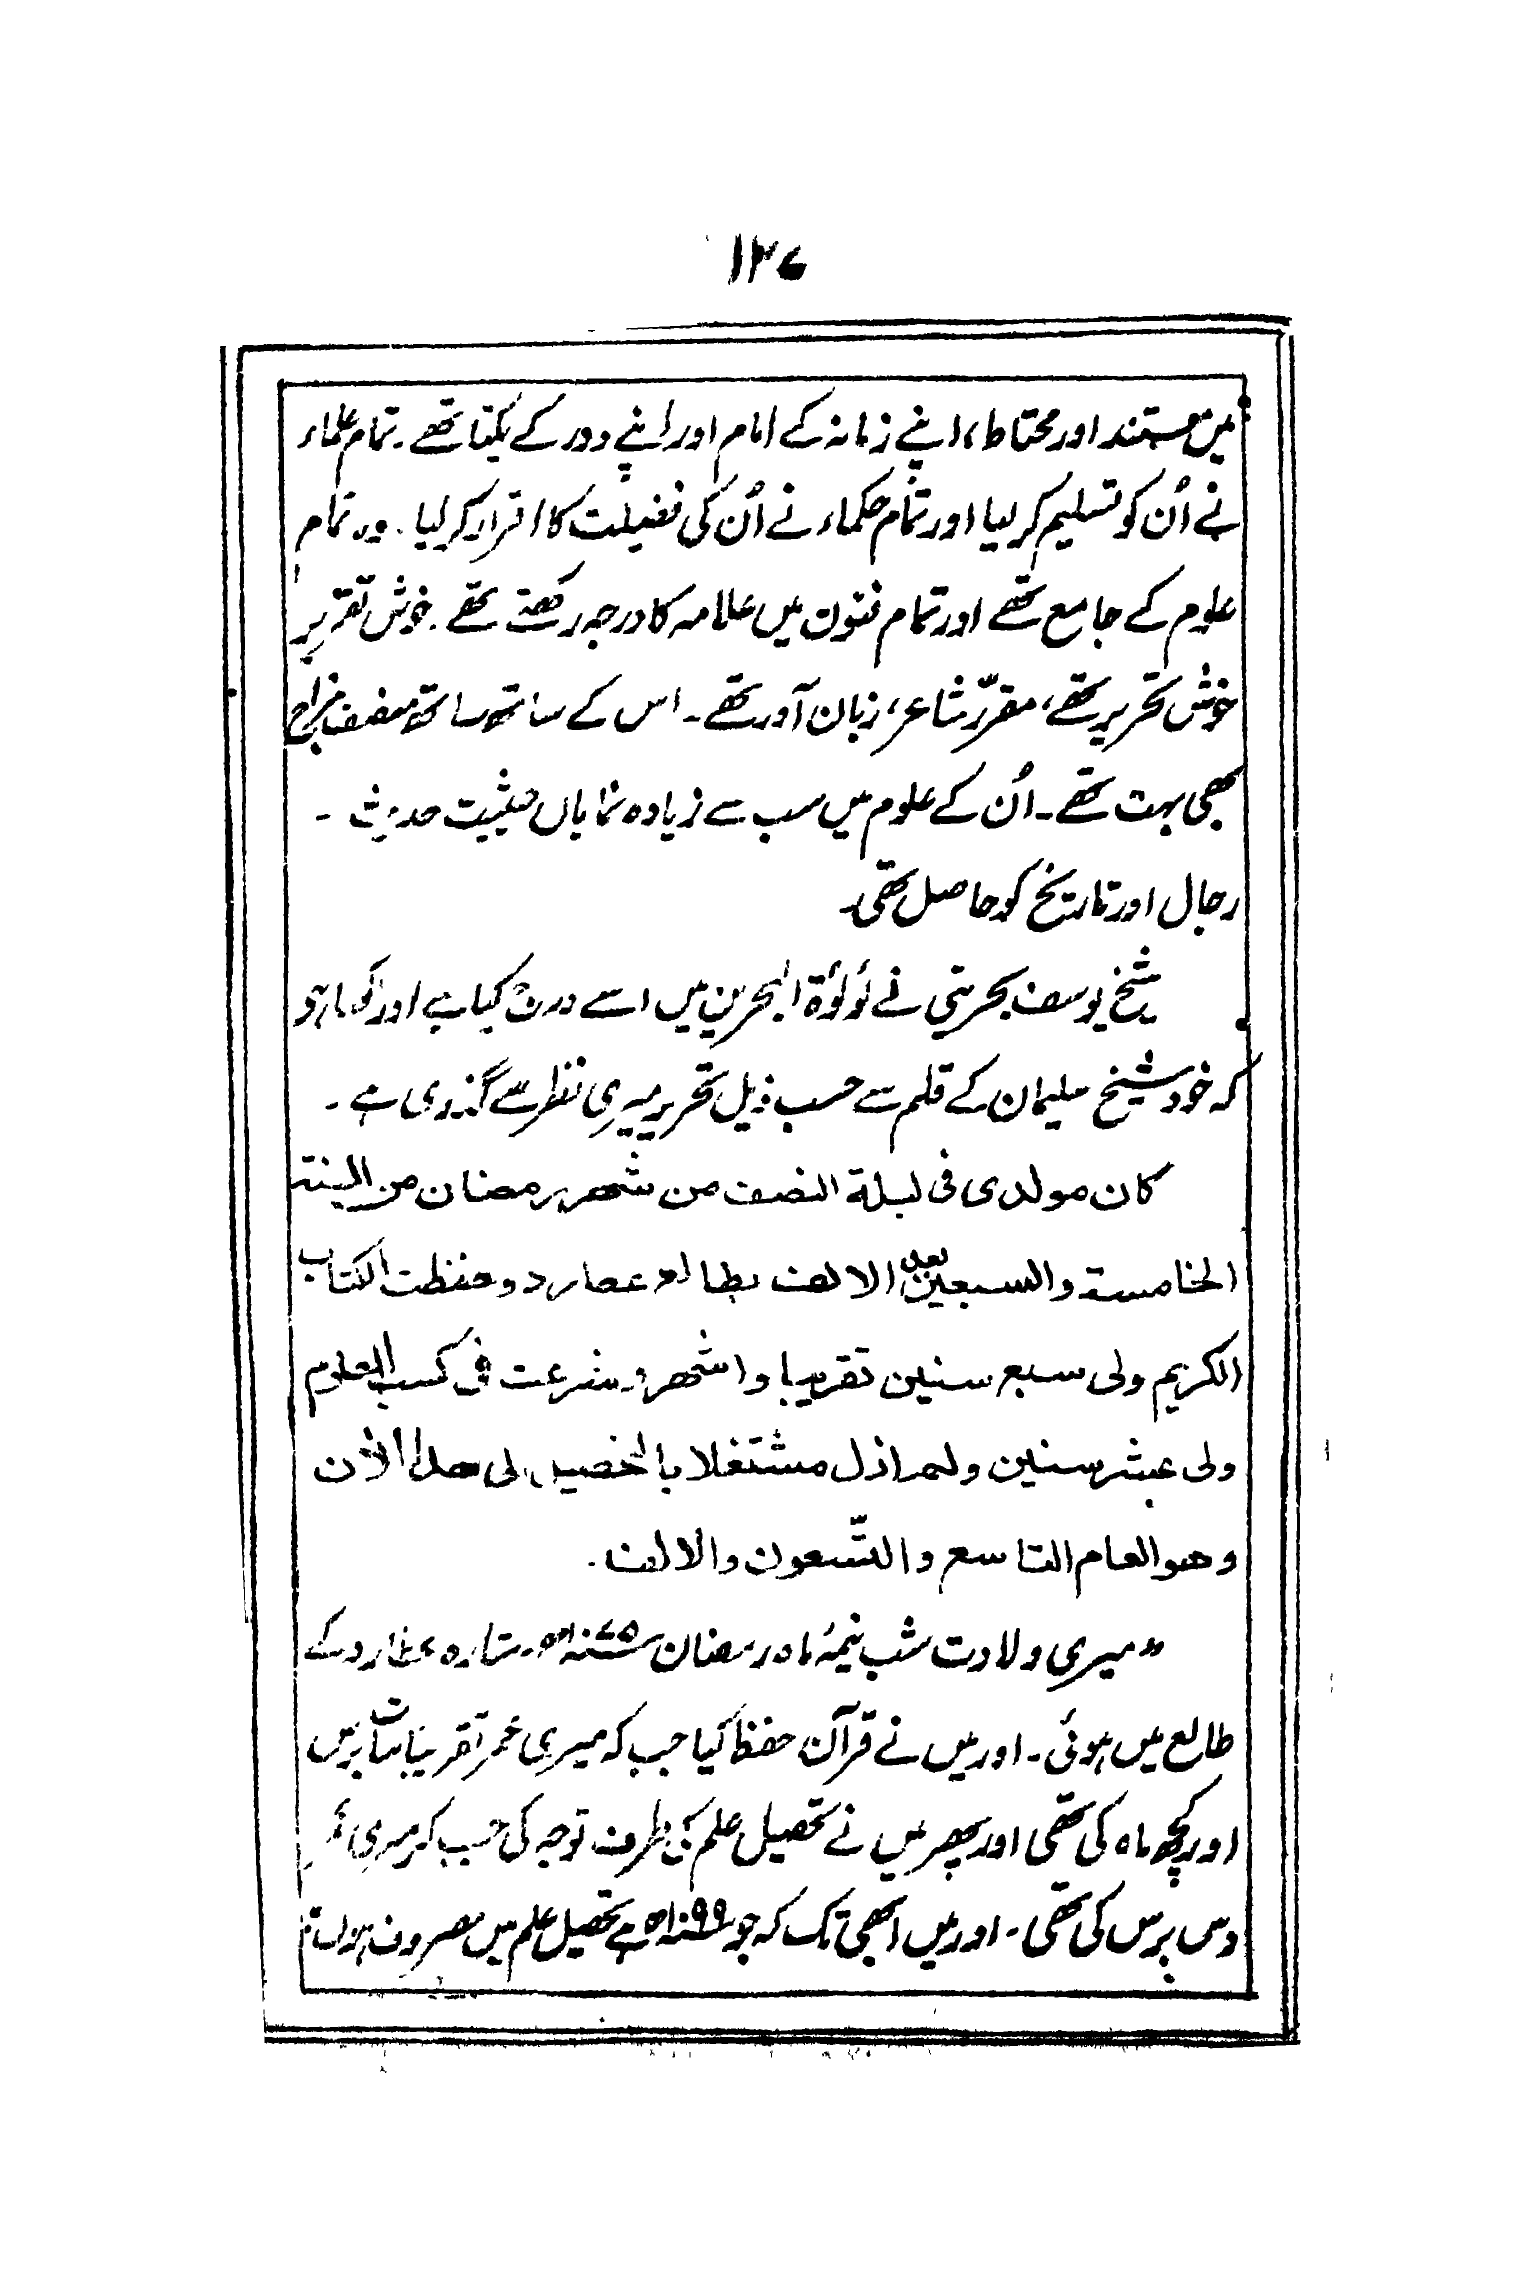 ۱۲۷
میں مستند اور محتاط، اپنے زمانہ کے امام اور اپنے دور کے یکتا تھے۔ تمام علماء
نے اُن کو تسلیم کر لیا اور تمام حکماء نے اُن کی فضیلت کا اقرار کر لیا۔ وہ تمام
علوم کے جامع تھے اور تمام فنون میں علامہ کا درجہ رکھتے تھے۔ خوش تقریر
خوش تحریر تھے، مقرّر شاعر، زبان آور تھے۔ اس کے ساتھ ساتھ منصف مزاج
بھی بہت تھے۔ اُن کے علوم میں سب سے زیادہ نمایاں حیثیت حدیث ۔
رجال اور تاریخ کو حاصل تھی۔
شیخ یوسف بحرینی نے لُولُوٴة البحرین میں اسے درج کیا ہے اور لکھا ہے
کہ خود شیخ سلیمان کے قلم سے حسب ذیل تحریر میری نظر سے گذری ہے ۔
کان مولدی فی لیلة النصف من شهر رمضان من السنة
الخامسة والسبعین بعد الالف بطالع عطارد وحفظت الکتاب
الکریم ولی سبع سنین تقریبا واشهر وشرعت فی کسب العلوم
ولی عشر سنین ولم ازل مشتغلا بالتحصیل الی هذا الآن
وهو العام التاسع والتّسعون والالف۔
"میری ولادت شب نیمۂ ماہ رمضان ۱۰۷۵ھ ستارہ عطارد کے
طالع میں ہوئی۔ اور میں نے قرآن حفظ کیا جب کہ میری عمر تقریبًا سات برس
اور کچھ ماہ کی تھی اور پھر میں نے تحصیل علم کی طرف توجہ کی جب کہ میری عمر
دس برس کی تھی۔ اور میں ابھی تک کہ جو ۱۰۹۹ھ ہے تحصیل علم میں مصروف ہوں